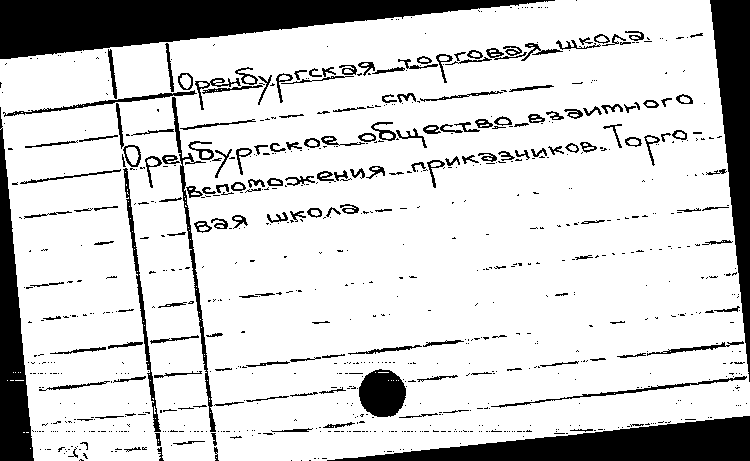 Оренбургская торговая школа.
см.
Оренбургское общество взаимного
вспоможения приказчиков. Торго-
вая школа.